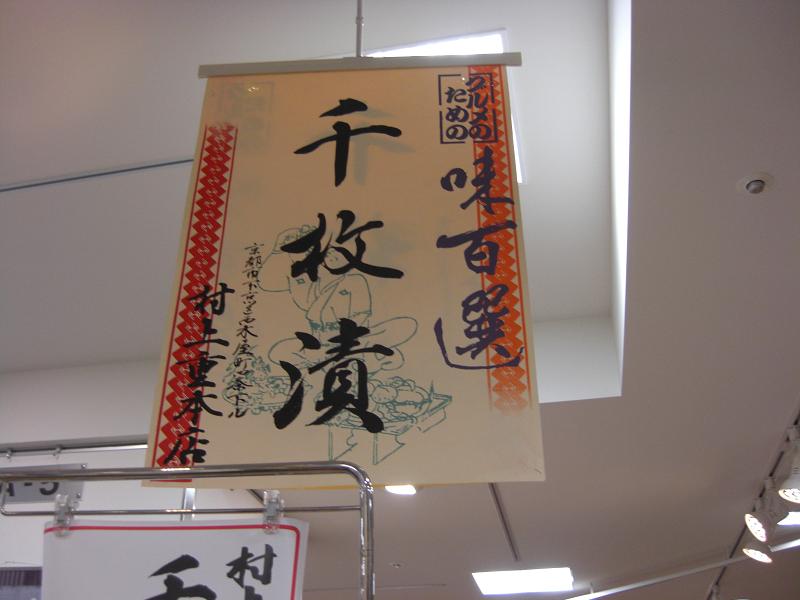 グルメの
ための
味百選
千枚漬
京都市下京区西木屋町四条下ル
村上重本店
A-5
村上
千